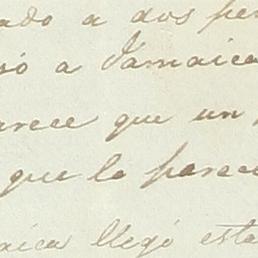 ado a dos per
só a Jamaica
arece que un
que lo parec
aica llegó esta